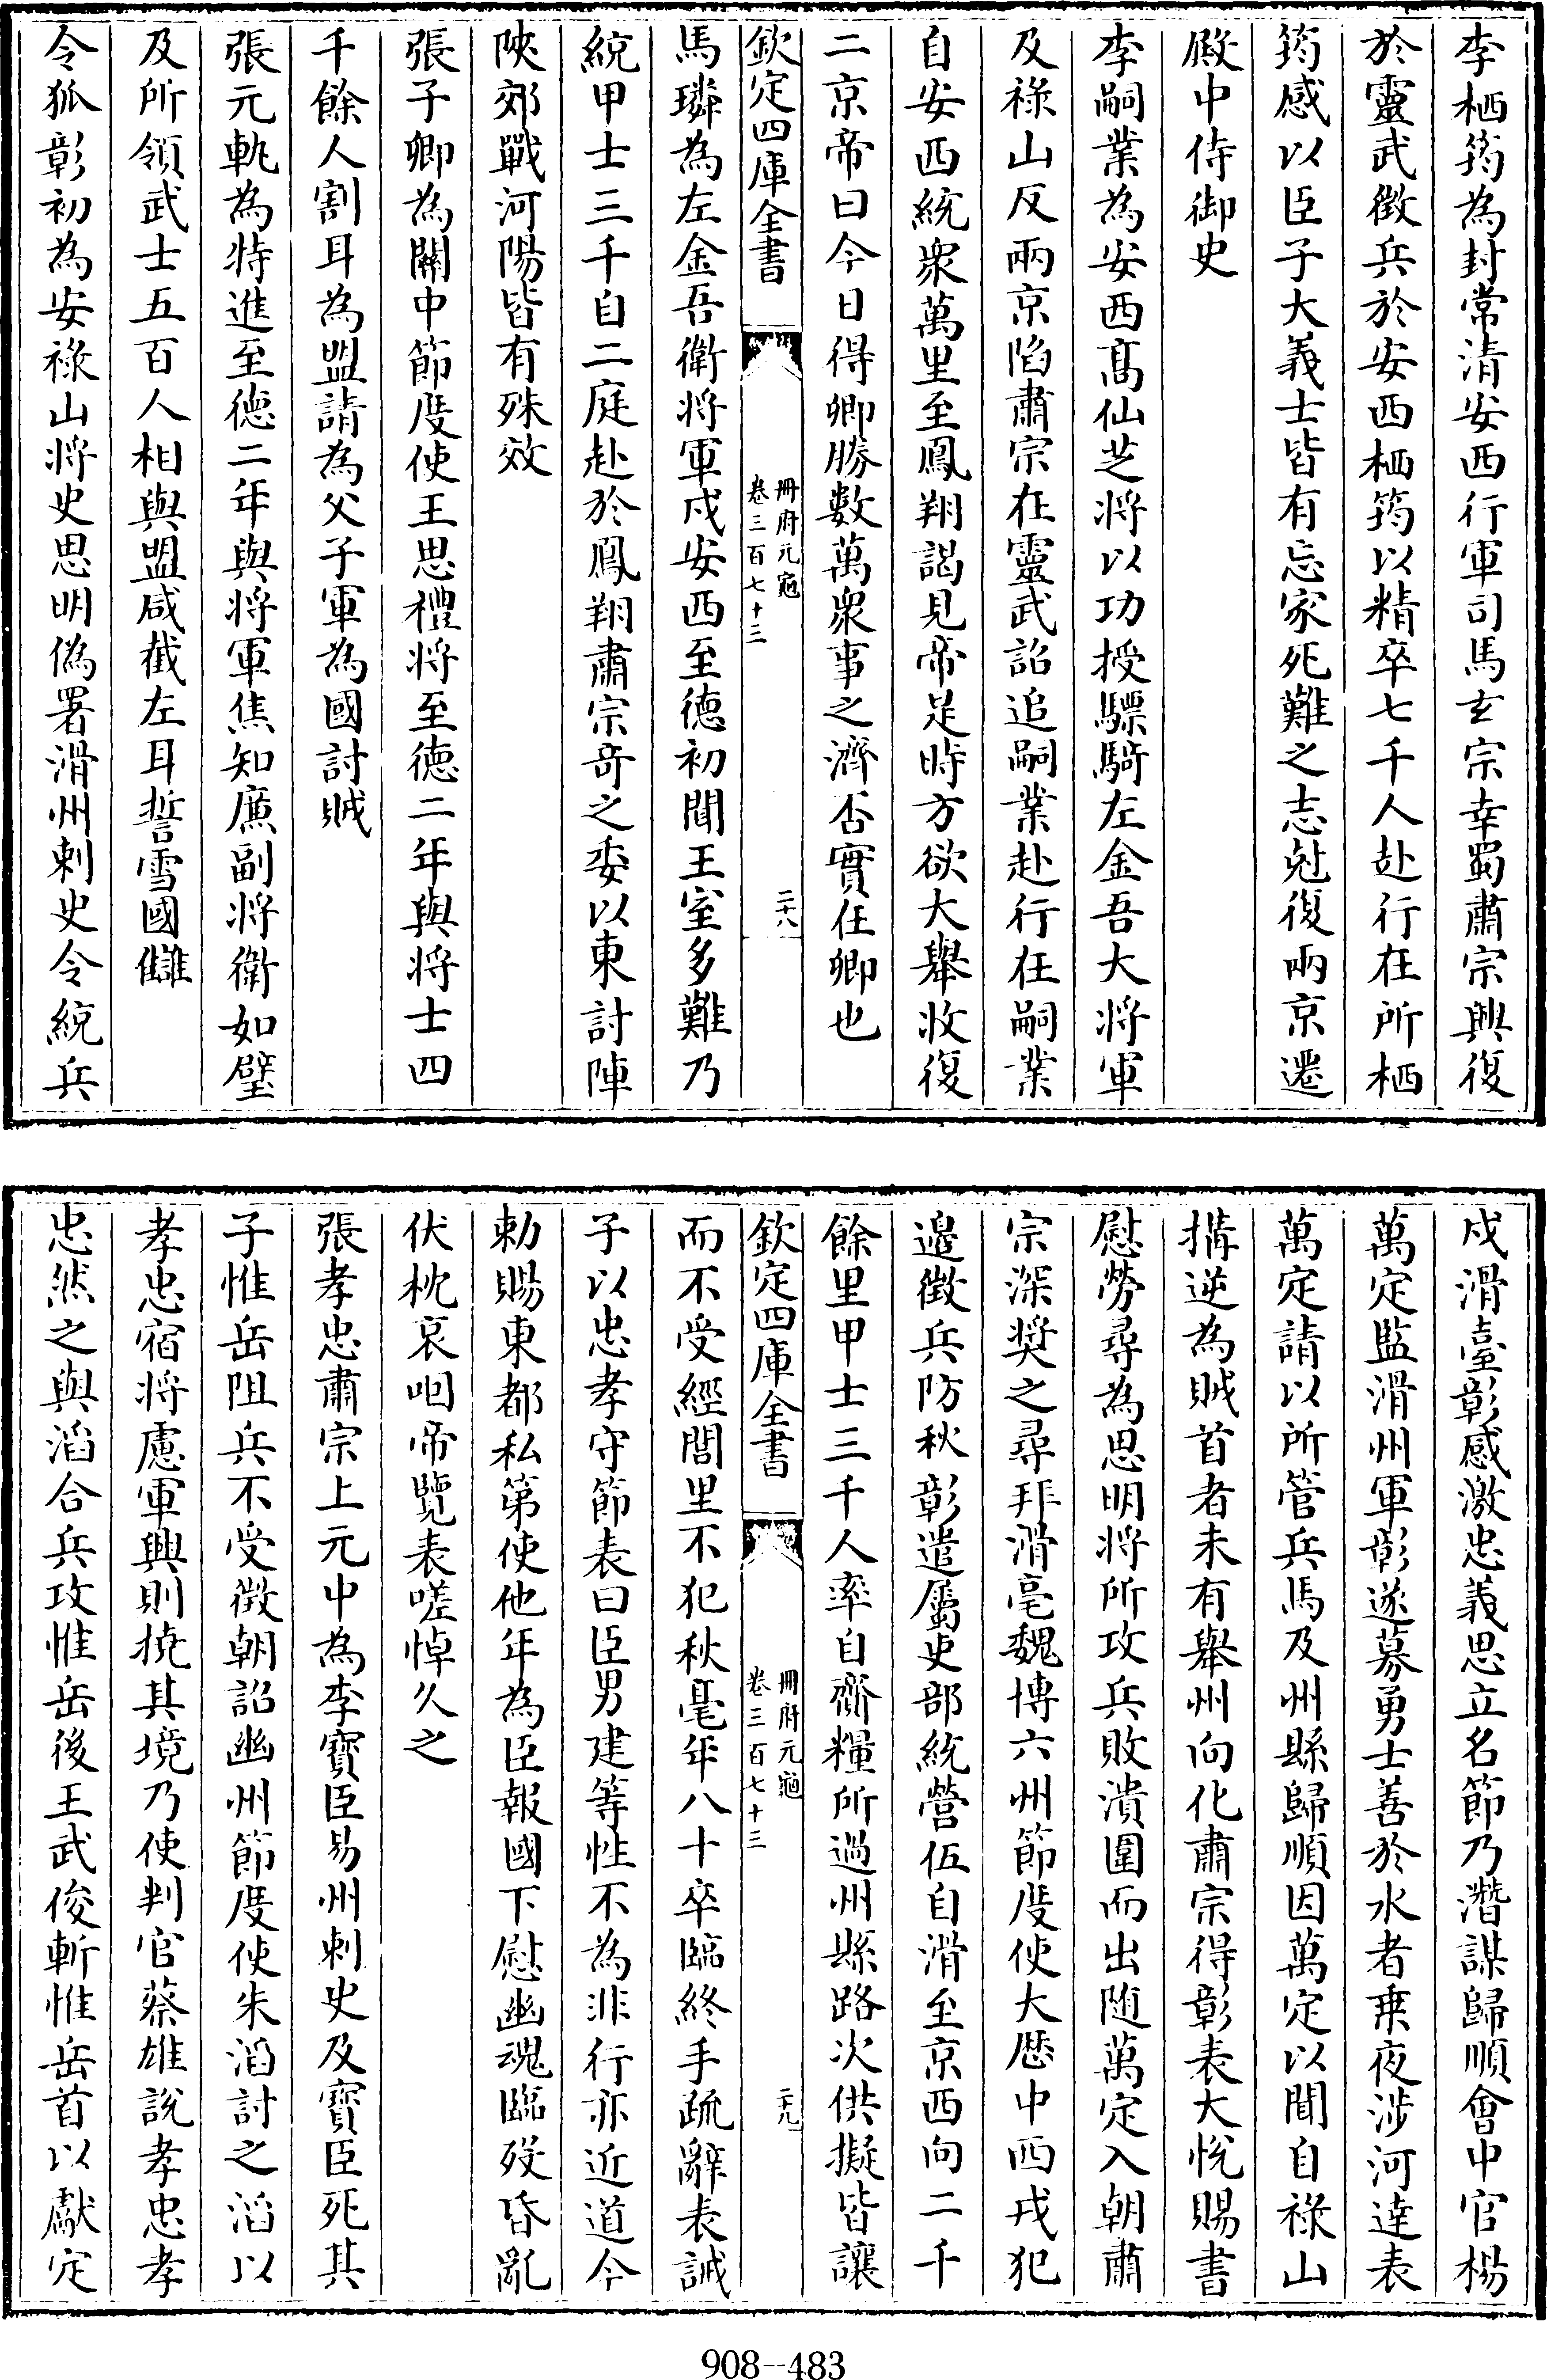 李栖筠為封常清安西行軍司馬玄宗幸蜀肅宗興復
於靈武徵兵於安西栖筠以精卒七千人赴行在所栖
筠感以臣子大義士皆有忘家死難之志尅復兩京遷
殿中侍御史
李嗣業為安西髙仙芝將以功授驃騎左金吾大將軍
及祿山反兩京陷肅宗在靈武詔追嗣業赴行在嗣業
自安西統衆萬里至鳳翔謁見帝足時方欲大舉收復
二京帝曰今日得卿勝數萬衆事之濟否實在卿也
欽定四庫全書
冊府元龜
卷三百七十三
二十八
馬璘為左金吾衛將軍戍安西至德初聞王室多難乃
統甲士三千自二庭赴於鳳翔肅宗竒之委以東討陣
陜郊戰河陽皆有殊效
張子卿為關中節度使王思禮將至德二年與將士四
千餘人割耳為盟請為父子軍為國討賊
張元軌為特進至德二年與將軍焦知廉副將衛如璧
及所領武士五百人相與盟咸截左耳誓雪國讎
令狐彰初為安祿山將史思明偽署滑州刺史令統兵
戍滑臺彰感激忠義思立名節乃潛謀歸順會中官楊
萬定監滑州軍彰遂募勇士善於水者乗夜涉河達表
萬定請以所管兵馬及州縣歸順因萬定以聞自祿山
搆逆為賊首者未有舉州向化肅宗得彰表大悅賜書
慰勞尋為思明將所攻兵敗潰圍而出随萬定入朝肅
宗深奬之尋拜滑亳魏博六州節度使大厯中西戎犯
邉徵兵防秋彰遣屬吏部統營伍自滑至京西向二千
餘里甲士三千人率自齎糧所過州縣路次供擬皆讓
欽定四庫全書
冊府元龜
卷三百七十三
二十九
而不受經閭里不犯秋毫年八十卒臨終手疏辭表誡
子以忠孝守節表曰臣男建等性不為非行亦近道今
勅賜東都私第使他年為臣報國下慰幽魂臨殁昏亂
伏枕哀咽帝覽表嗟悼久之
張孝忠肅宗上元中為李寳臣易州刺史及寳臣死其
子惟岳阻兵不受徵朝詔幽州節度使朱滔討之滔以
孝忠宿將慮軍興則撓其境乃使判官蔡雄說孝忠孝
忠然之與滔合兵攻惟岳後王武俊斬惟岳首以獻定
908--483